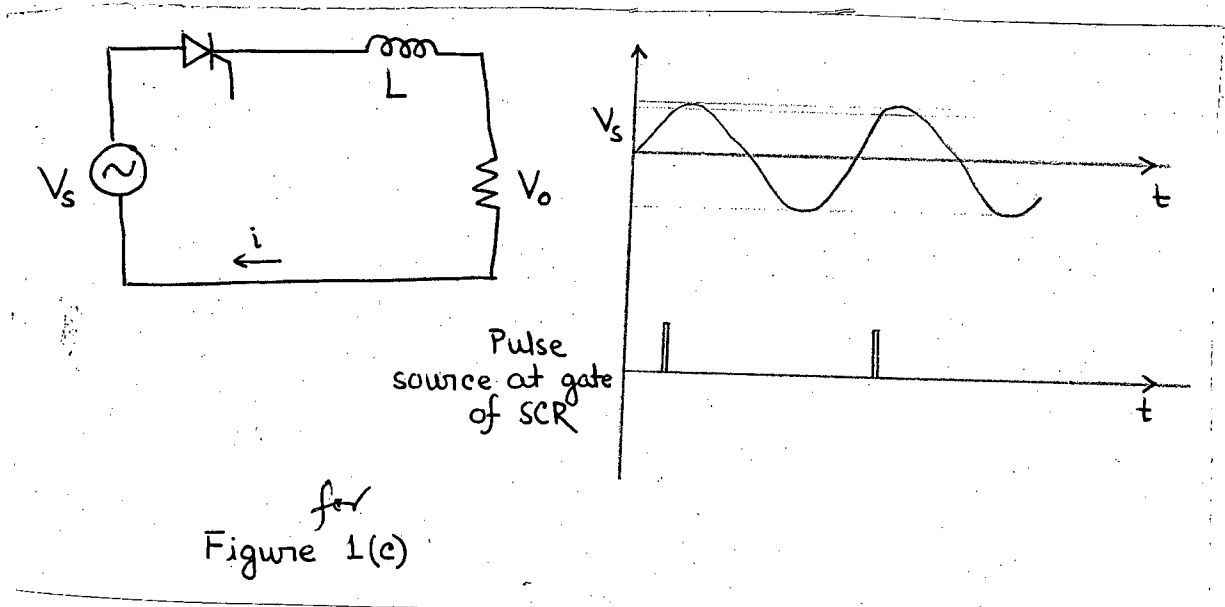 L
Vs
Vo
i
Vs
t
Pulse
source at gate
of SCR
t
for
Figure 1(c)